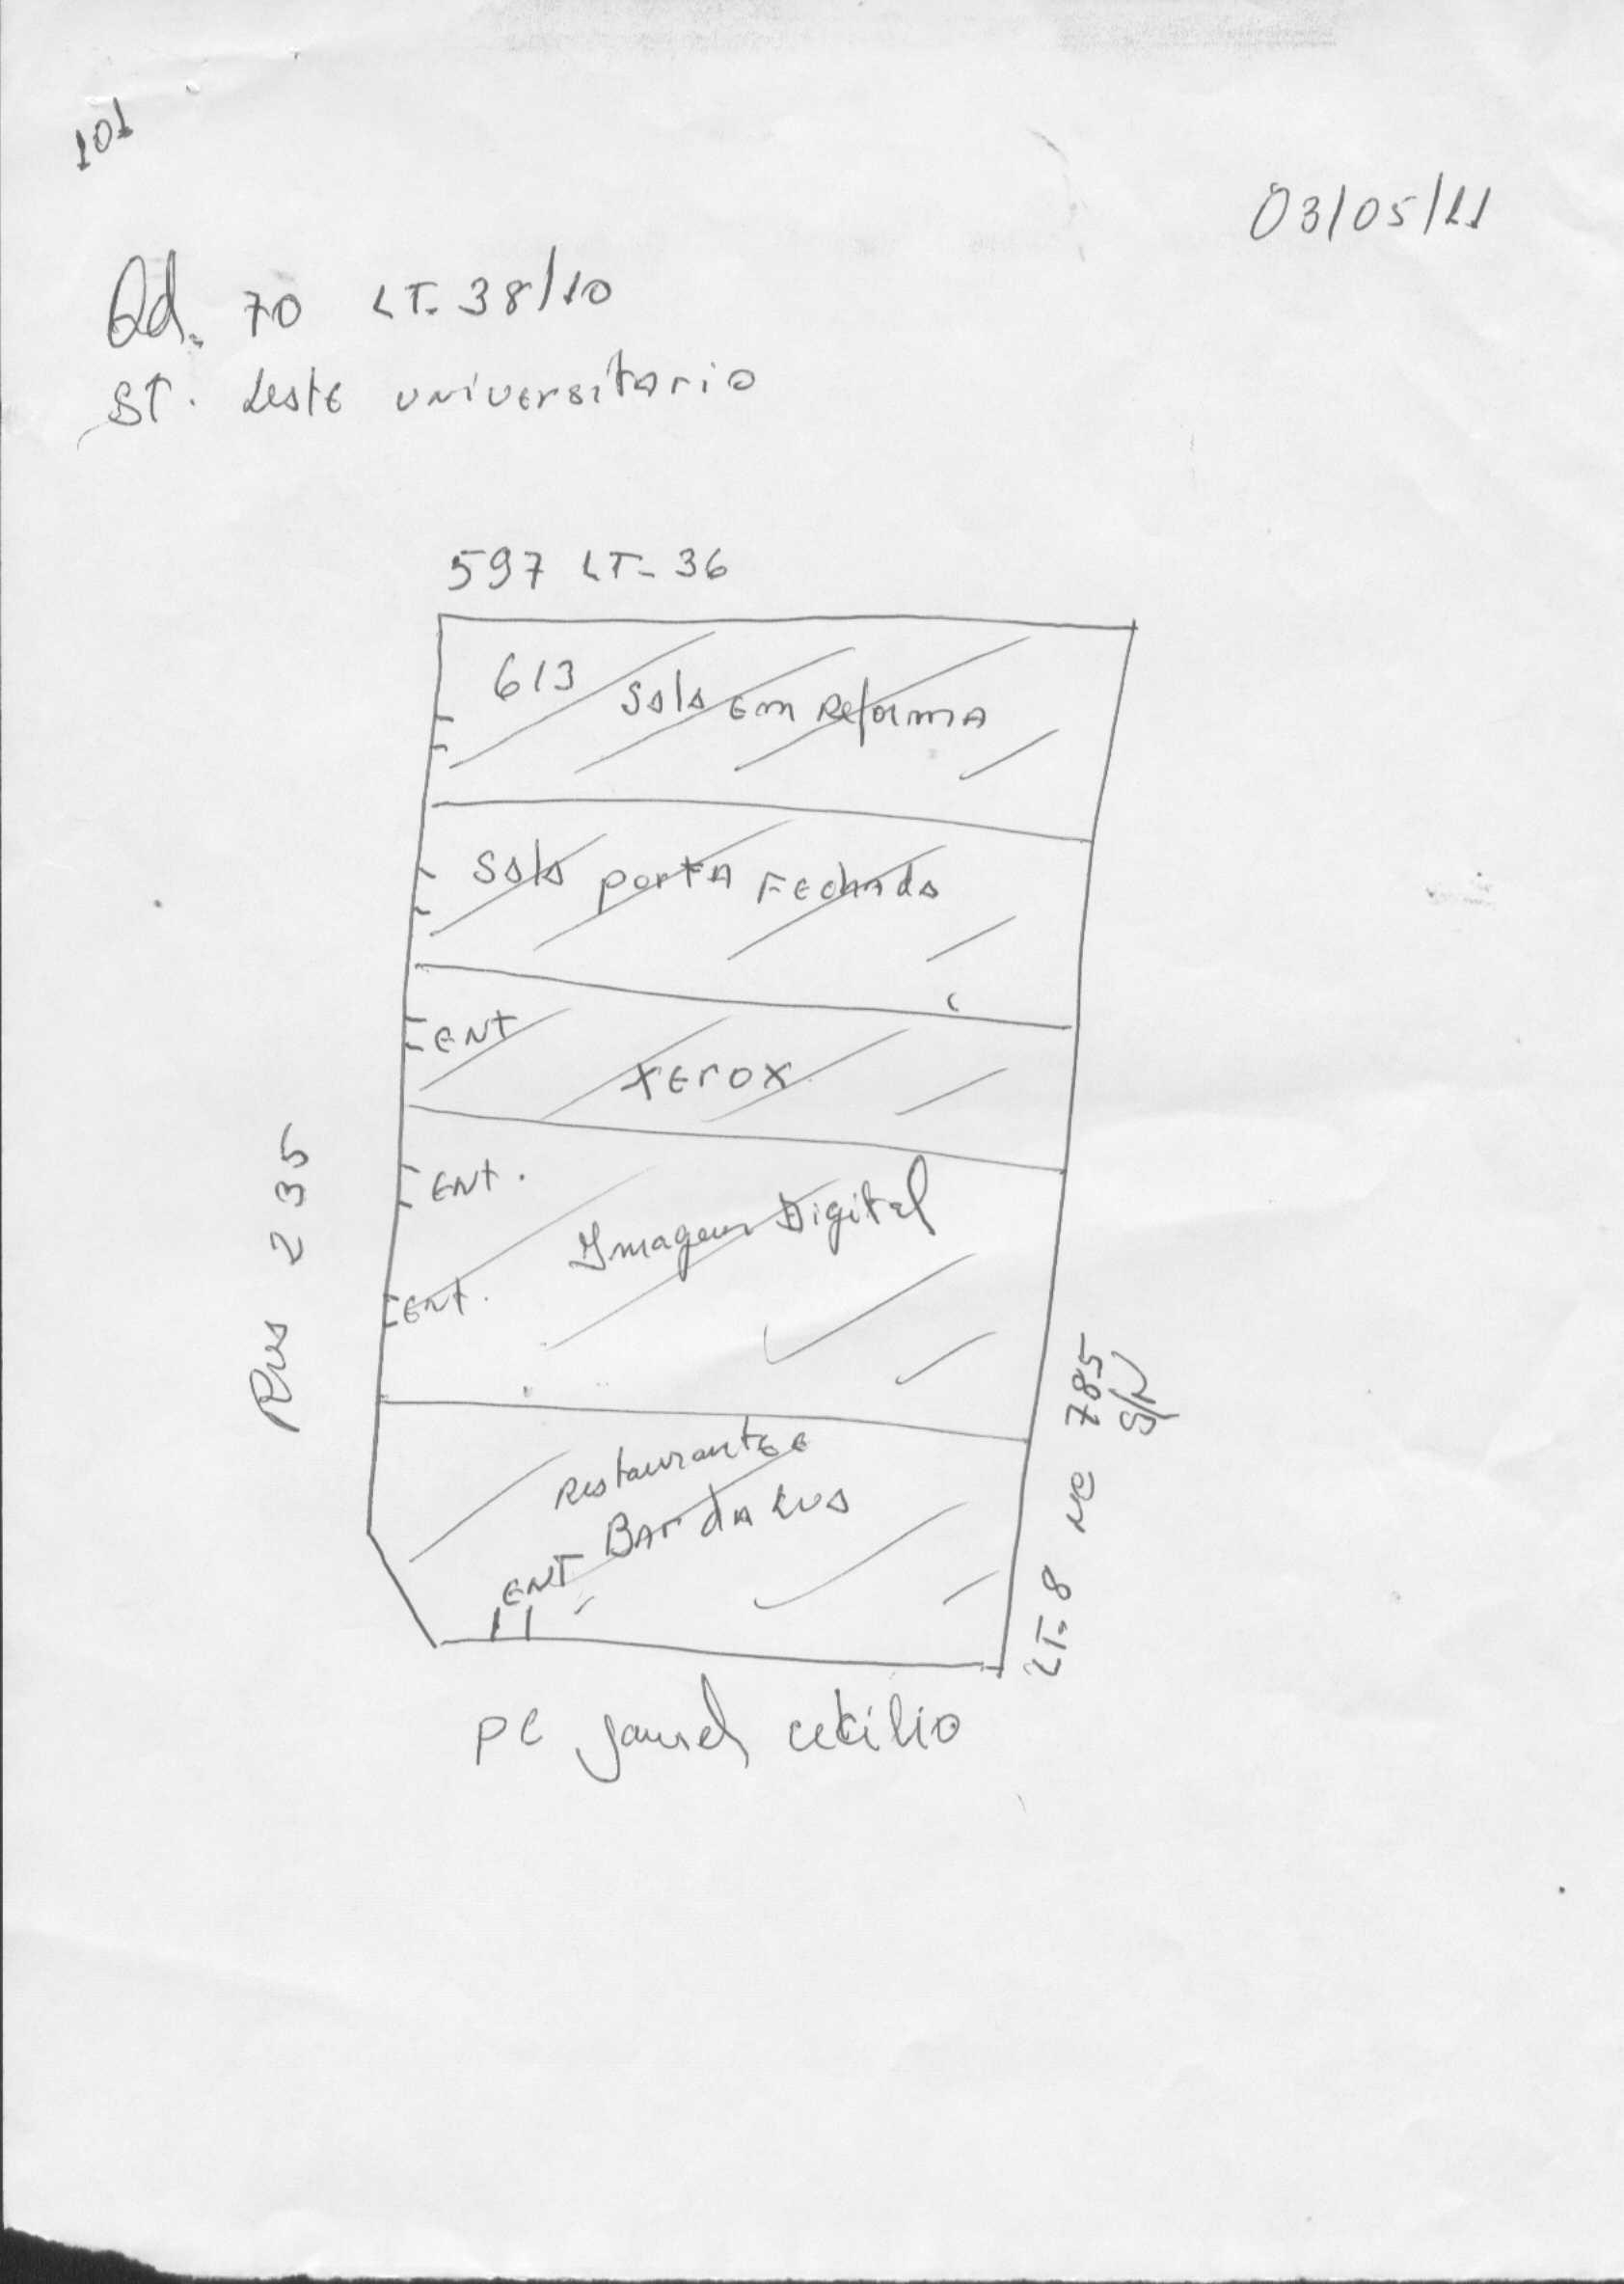 101
03/05/11
Qd. 70 LT. 38/10
ST. Leste universitario
597 LT- 36
613 Sala em Reforma
Sala porta Fechada
ENT
Xerox
ENT.
Imagem Digital
ENT.
Restaurante e
Bar da Lua
ENT
Rua 235
LT. 8 Nº 785
S/N
PC